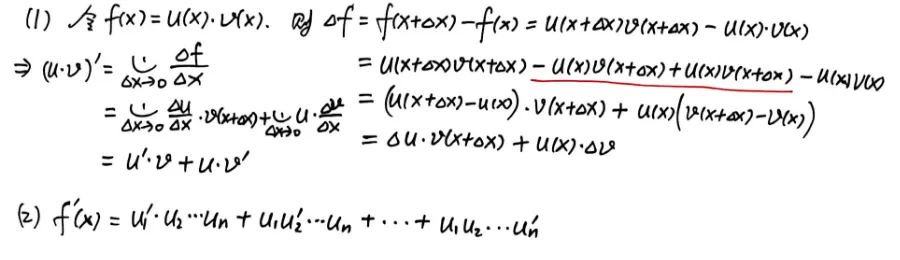 (1) 令 f(x)=u(x)·v(x). 则 Δf = f(x+Δx)-f(x) = u(x+Δx)v(x+Δx) - u(x)·v(x)
= u(x+Δx)v(x+Δx) - u(x)v(x+Δx) + u(x)v(x+Δx) - u(x)v(x)
= (u(x+Δx)-u(x))·v(x+Δx) + u(x)(v(x+Δx)-v(x))
= Δu·v(x+Δx) + u(x)·Δv
⇒ (u·v)' = lim Δx→0 Δf/Δx
= lim Δx→0 Δu/Δx ·v(x+Δx) + lim Δx→0 u· Δv/Δx
= u'·v + u·v'
(2) f'(x) = u₁'·u₂···uₙ + u₁u₂'···uₙ + ··· + u₁u₂···uₙ'